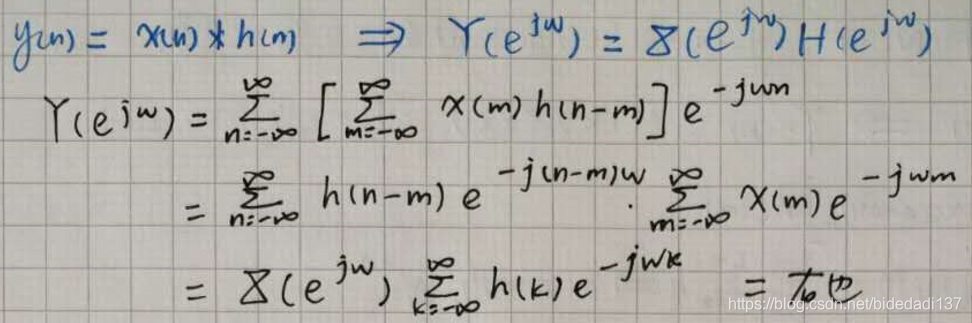 y(n) = x(n) * h(n) ⇒ Y(e^{jw}) = X(e^{jw}) H(e^{jw})
Y(e^{jw}) = \sum_{n=-∞}^{∞} [ \sum_{m=-∞}^{∞} x(m) h(n-m) ] e^{-jwn}
= \sum_{n=-∞}^{∞} h(n-m) e^{-j(n-m)w} · \sum_{m=-∞}^{∞} x(m) e^{-jwm}
= X(e^{jw}) \sum_{k=-∞}^{∞} h(k) e^{-jwk} = 右边
https://blog.csdn.net/bidedadi137